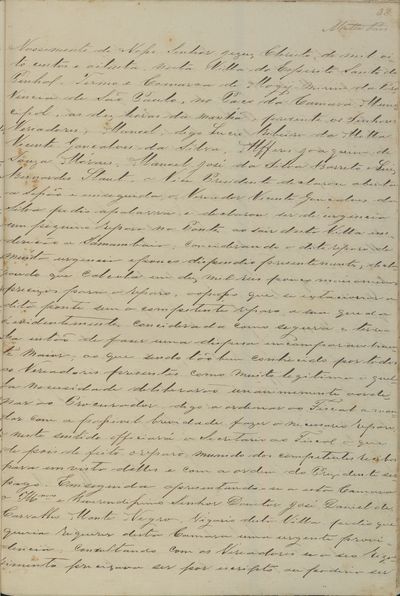 32
Nascimento de Nosso Senhor Jezus Christo, de mil oi
to centos e oitenta nesta Villa do Espirito Santo do
Pinhal. Termo e Comarca de Mogy-mirim da Pro
vincia de São Paulo, no Paço da Camara Muni
cipal, as dez horas da manhã, presente os Senhores
Vereadores, Manoel, digo Lucio Ribeiro da Motta
Vicente Gonçalves da Silva, Alferes Joaquim de
Souza Moraes, Manoel José da Silva Barreto e Luiz
Bernardo Staut. Vice Presidente declarou aberta
a sessão e em seguida o Vereador Vicente Gonçalves da
Silva pedio a palavra e declarou ser de urgencia
um pequeno reparo na Ponte ao sair desta Villa em
direcção a Samambaia, considerando o dito reparo de
muita urgencia e pouco dispendio presentemente, da
quelle que calcula em dez mil reis pouco mais ou menos
preciso para o reparo,
dita ponte sem o competente reparo, e sua queda
evidentemente considerada como segura e tera
se então de fazer uma despesa incomparavelmen
te Maior; ao que sendo tão bem conhecido por todos
os Vereadores presentes como muito legitima aquel
la necessidade deliberarão unanimemente orde
nar ao Procurador, digo a ordenar ao Fiscal a man
dar com a possivel brevidade fazer o necessario reparo,
e neste sentido officiará o Secretario ao Fiscal e que
depois de feito o reparo, munido dos competentes recibos
para em vista delles e com a ordem do Presidente ser
pago. Em seguida apresentando-se a esta Camara
o Illmo e Reverendissimo Senhor Doutor José Daniel de
Carvalho Monte Negro, Vigario desta Villa pedio que
queria requerer desta Camara uma urgente provi
dencia, consultando com os Vereadores se o seo reque
rimento precizava ser por escripto, ou poderia ser